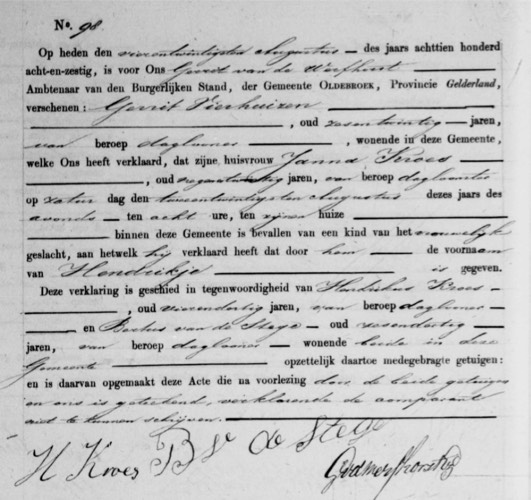 No. 98
Op heden den vierentwintigsten Augustus – des jaars achttien honderd
acht-en-zestig, is voor Ons Gerrit van de Werfhorst
Ambtenaar van den Burgerlijken Stand, der Gemeente OLDEBROEK, Provincie Gelderland,
verschenen: Gerrit Vierhuizen
, oud zesentwintig – jaren,
van beroep daglooner –, wonende in deze Gemeente,
welke Ons heeft verklaard, dat zijne huisvrouw Janna Kroes
, oud jaren, van beroep
op zatur dag den tweeentwintigsten Augustus dezes jaars des
avonds – ten acht ure, ten zijnen huize
binnen deze Gemeente is bevallen van een kind van het vrouwelijk
geslacht, aan hetwelk hij verklaard heeft dat door hem – de voornaam
van Hendrikje is gegeven.
Deze verklaring is geschied in tegenwoordigheid van Kroes –
, oud vierendertig jaren, van beroep daglooner –
– en van de Stege – oud zesendertig –
jaren, van beroep daglooner – wonende beide in deze
Gemeente opzettelijk daartoe medegebragte getuigen:
en is daarvan opgemaakt deze Acte die na voorlezing door de beide getuigen
en ons is geteekend, verklarende de comparant
niet te kunnen schrijven.
H Kroes B v de Stege